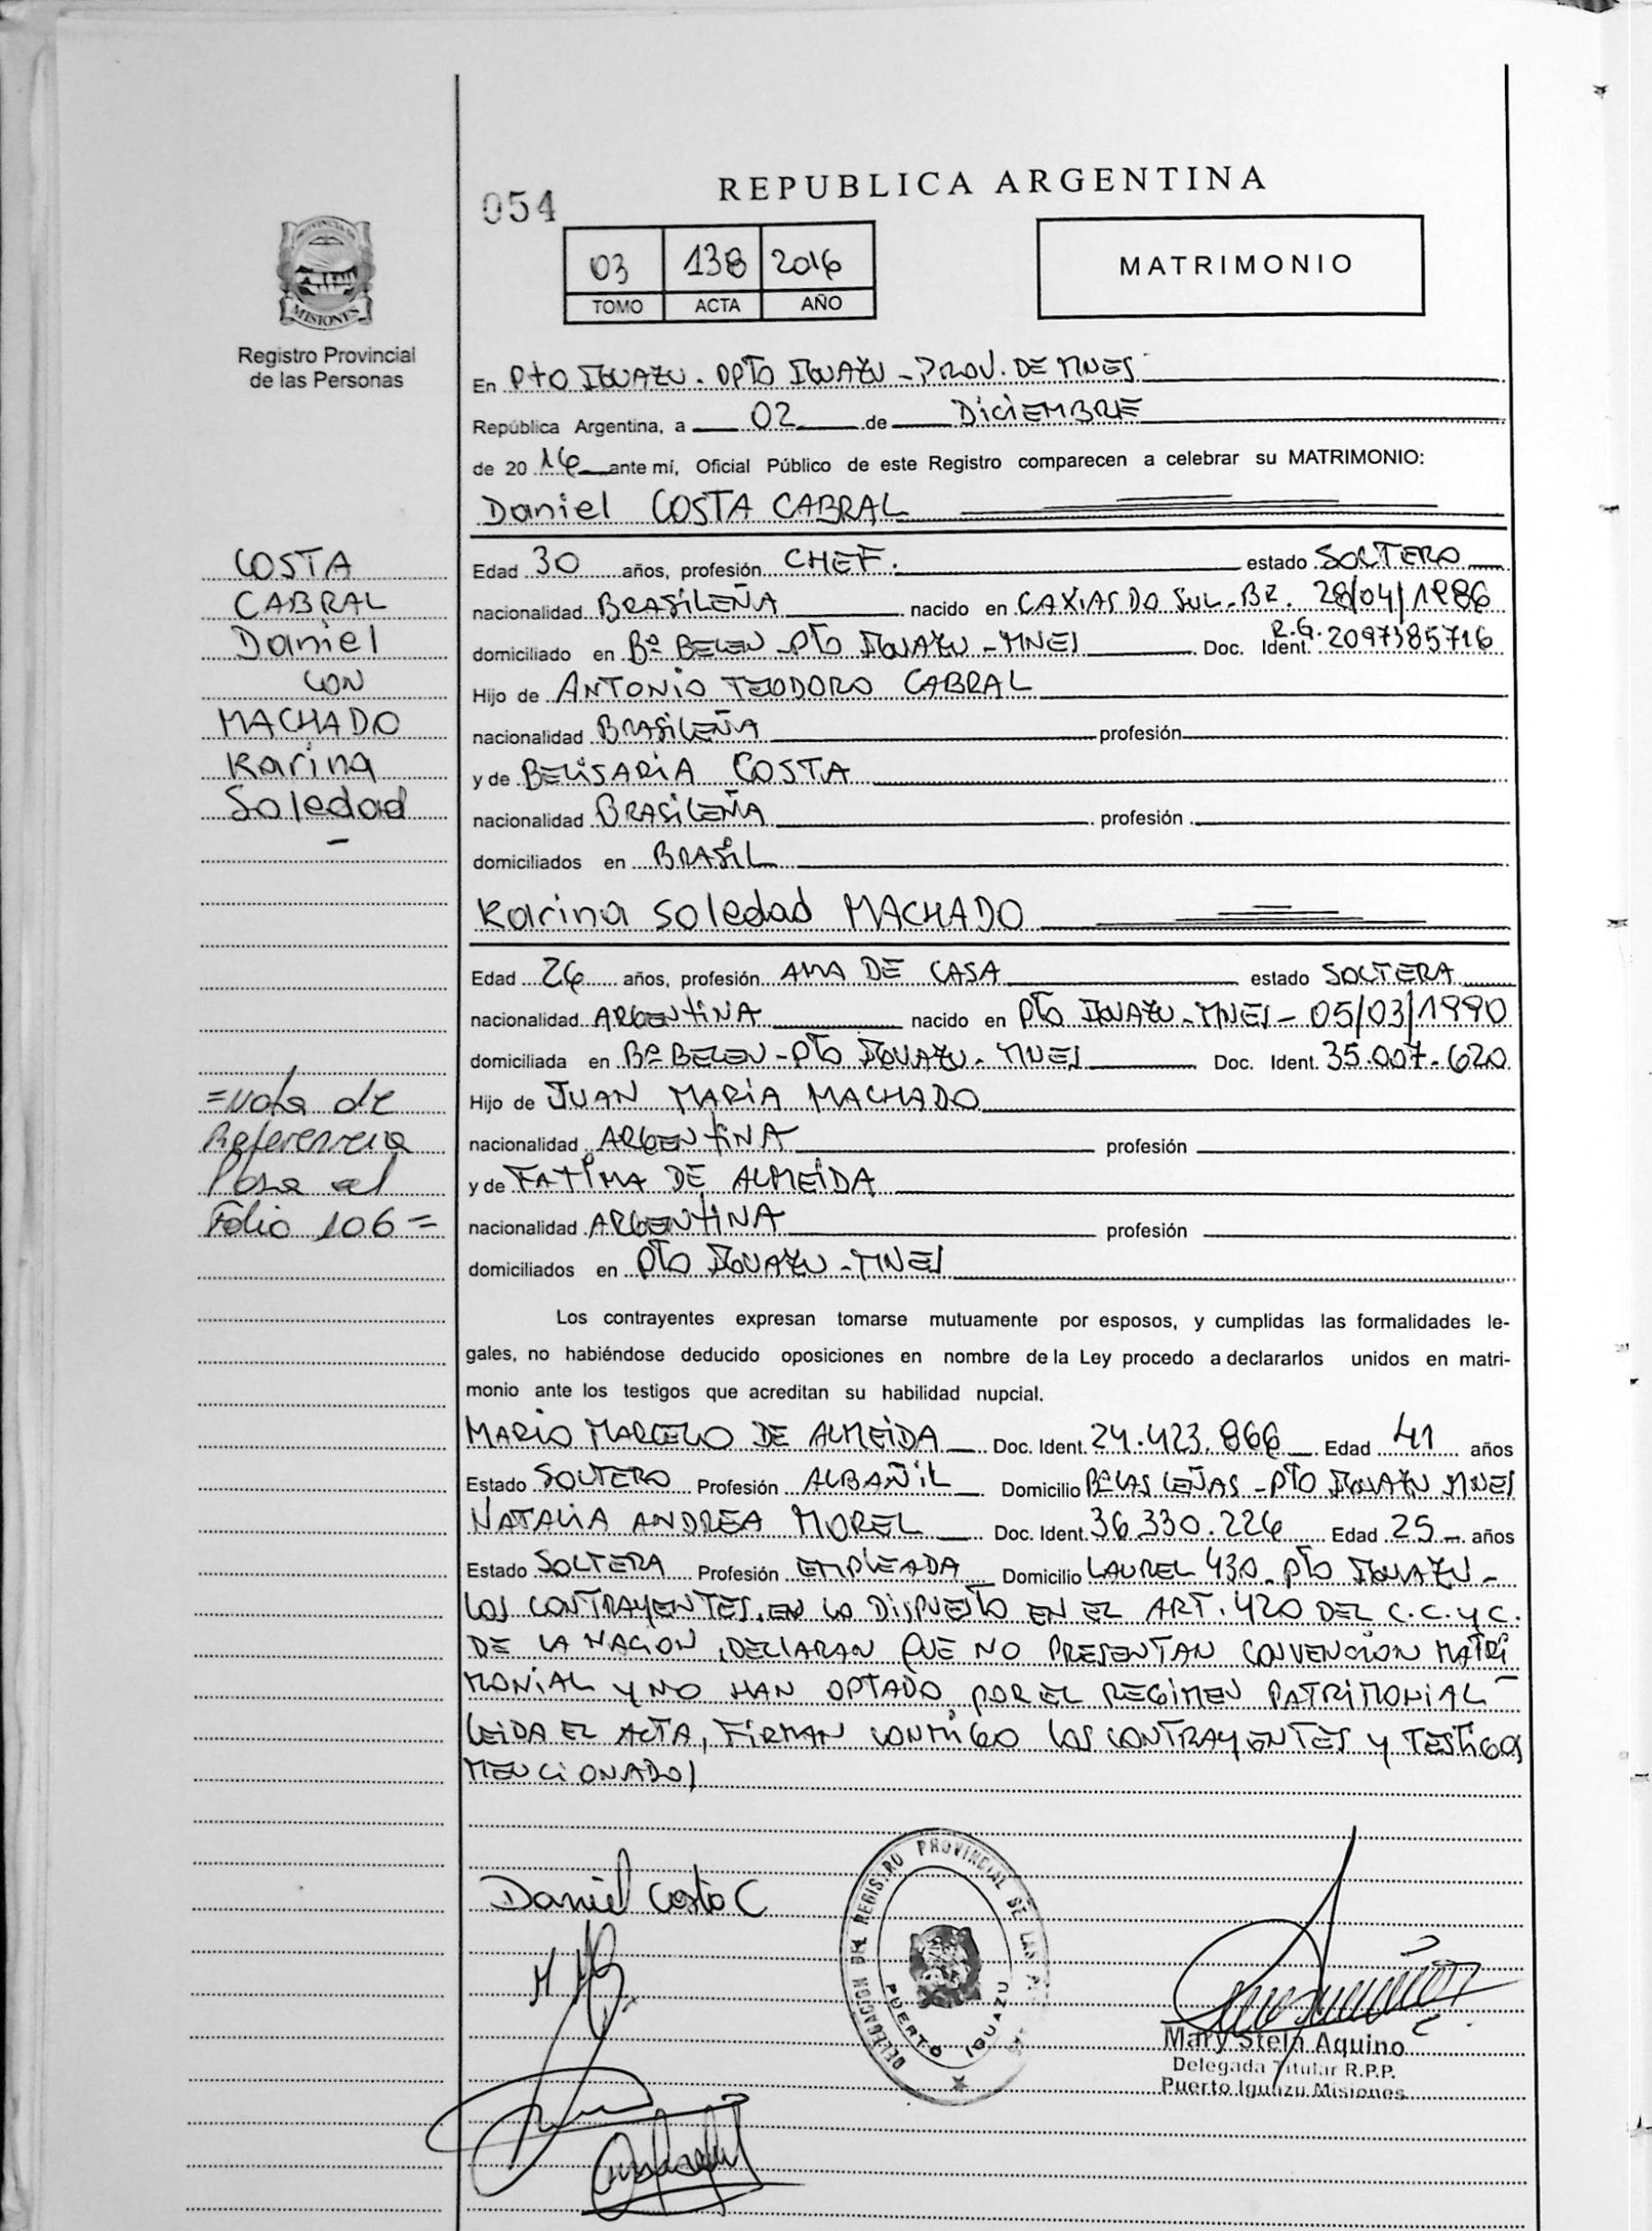 REPUBLICA ARGENTINA
054
03 138 2016
TOMO ACTA AÑO
MATRIMONIO
PROVINCIA DE
MISIONES
Registro Provincial
de las Personas
En Pto IGUAZU. DPTO IGUAZU - PROV. DE MNES
República Argentina, a 02 de DICIEMBRE
de 20 16 ante mí, Oficial Público de este Registro comparecen a celebrar su MATRIMONIO:
Daniel COSTA CABRAL
COSTA
CABRAL
Daniel
CON
MACHADO
Karina
Soledad
Edad 30 años, profesión CHEF. estado SOLTERO
nacionalidad BRASILEÑA nacido en CAXIAS DO SUL-BR. 28/04/1986
domiciliado en Bº BELEN - PTO IGUAZU - MNES Doc. Ident. R.G. 2097385716
Hijo de ANTONIO TEODORO CABRAL
nacionalidad BRASILEÑA profesión
y de BELISARIA COSTA
nacionalidad BRASILEÑA profesión
domiciliados en BRASIL
Karina Soledad MACHADO
Edad 26 años, profesión AMA DE CASA estado SOLTERA
nacionalidad ARGENTINA nacido en PTO IGUAZU - MNES - 05/03/1990
domiciliada en Bº BELEN - PTO IGUAZU - MNES Doc. Ident. 35.007.620
Hijo de JUAN MARIA MACHADO
nacionalidad ARGENTINA profesión
y de FATIMA DE ALMEIDA
nacionalidad ARGENTINA profesión
domiciliados en PTO IGUAZU - MNES
=Nota de
Referencia
Pasa al
Folio 106=
Los contrayentes expresan tomarse mutuamente por esposos, y cumplidas las formalidades le-
gales, no habiéndose deducido oposiciones en nombre de la Ley procedo a declararlos unidos en matri-
monio ante los testigos que acreditan su habilidad nupcial.
MARIO MARCELO DE ALMEIDA Doc. Ident. 24.423.866 Edad 41 años
Estado SOLTERO Profesión ALBAÑIL Domicilio Bº LAS LEÑAS - PTO IGUAZU MNES
NATALIA ANDREA MOREL Doc. Ident. 36.330.226 Edad 25 años
Estado SOLTERA Profesión EMPLEADA Domicilio LAUREL 430 - PTO IGUAZU -
LOS CONTRAYENTES, EN LO DISPUESTO EN EL ART. 420 DEL C.C. y C.
DE LA NACION, DECLARAN QUE NO PRESENTAN CONVENCION MATRI
MONIAL Y NO HAN OPTADO POR EL REGIMEN PATRIMONIAL
LEIDA EL ACTA, FIRMAN CONMIGO LOS CONTRAYENTES Y TESTIGOS
MENCIONADOS
Daniel Costa C
DELEGACION DEL REGISTRO PROVINCIAL DE LAS
PUERTO IGUAZU
Mary Stela Aquino
Delegada Titular R.P.P.
Puerto Iguazu Misiones